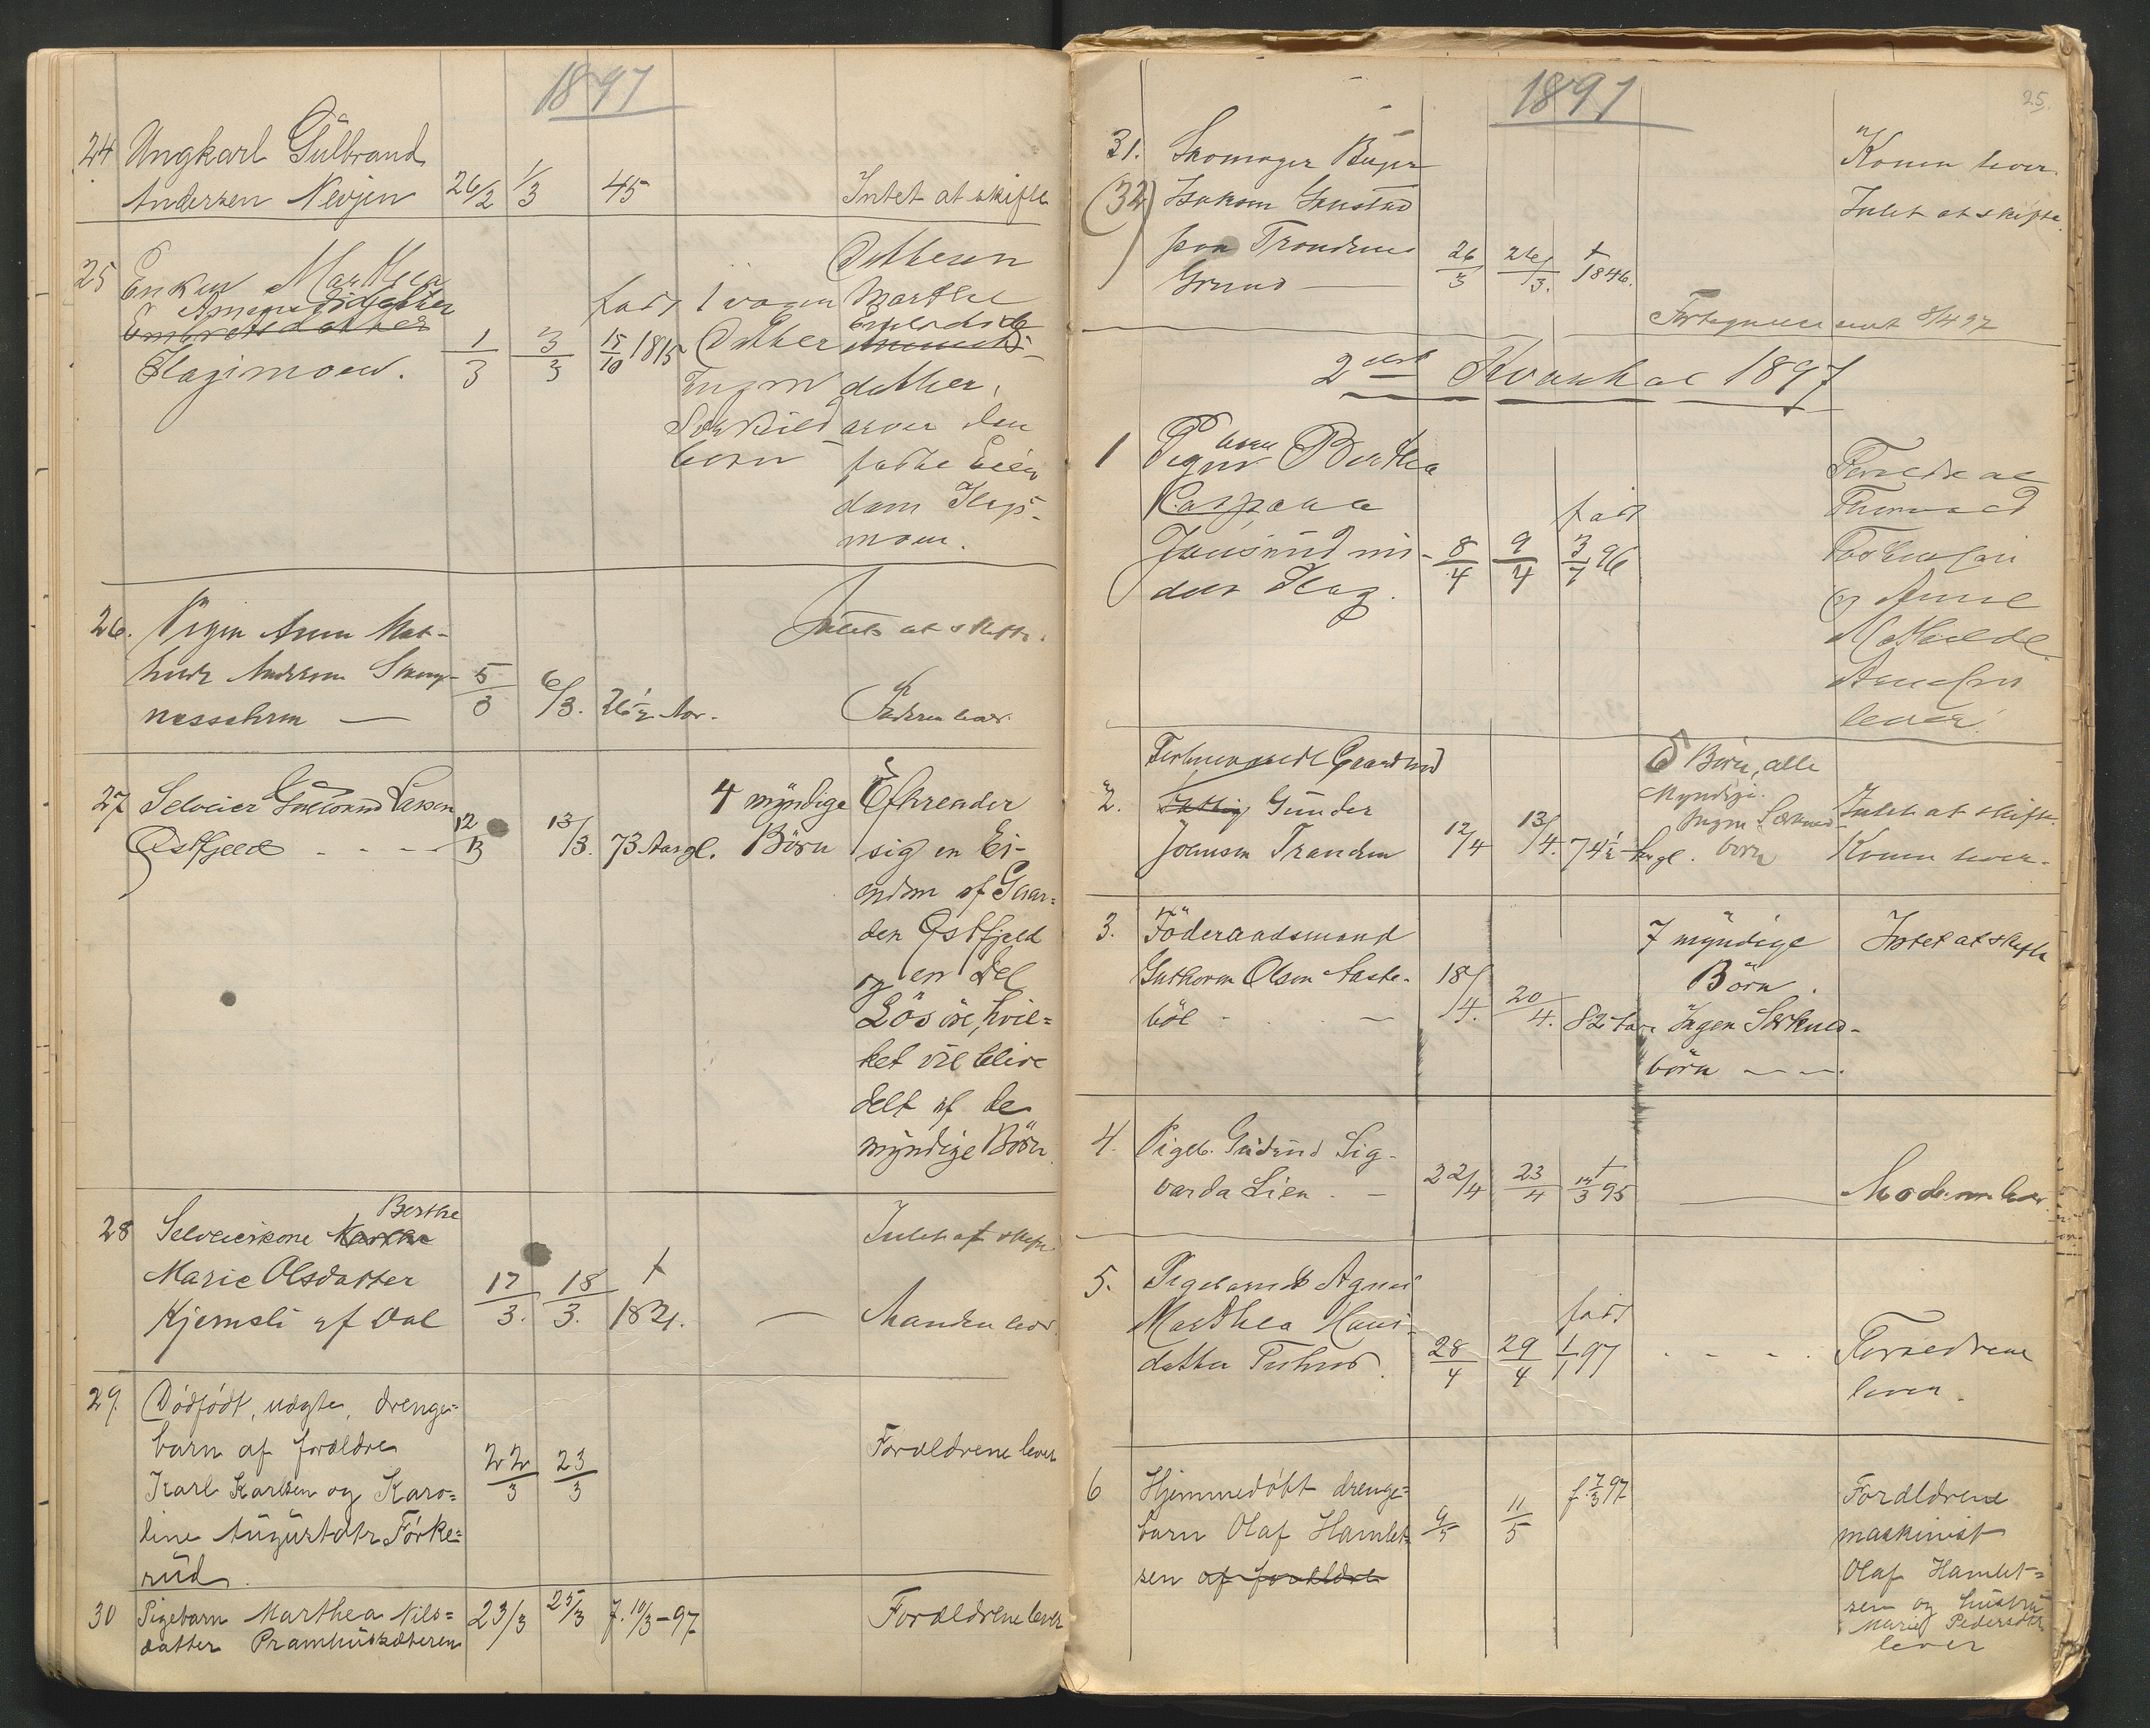 1897
24 Ungkarl Gülbrand
Andersen Nevjen 26/2 1/3 45 Intet at skifte
25 Enken Marthea
Amundsdatter
Embretsdatter
Hagimoen. 1/3 3/3 født 15/10 1815
1 voxen
Datter
Ingen
Særkuld
born
Datteren
Marthe
datter,
arver den
faste Eien
dom Hagi-
moen.
26. Pigen Anna Mat-
hilde Andersen Stang-
nesseteren — 5/3 6/3. 26 1/2 Aar.
Intet at skifte.
Faderen lever.
27 Selveier Gulbrand Larsen
Østfjeld - - - 12/3 13/3. 73 Aar gl.
4 myndige
Börn
Efterlader
sig en Ei-
endom af Gaar-
den Østfjeld
og en Del
Lösöre, hvil-
ket vil blive
delt af de
myndige Börn.
28 Selveierkone Marthe Berthe
Marie Olsdatter
Kjemsli af Dal 17/3. 18/3. † 1821. —
Intet at skifte
Manden lever.
29. Dødfødt, uægte, drenge=
barn af forældre
Karl Karlsen og Karo=
line Augustdtr Förke=
rüd. 22/3 23/3
Forældrene lever
30 Pigebarn Marthea Nils=
datter Pramhüsæteren 23/3 25/3 f. 10/3-97 Forældrene lever
1897
25.
31. Skomager Birger
(32) Isaksen Grustad
paa Trondens
Grund — 26/3 26/3. † 1846.
Konen lever.
Intet at skifte.
Fortegnelse sent 8/4 97
2det Kvartal 1897
1 Pigebarn Bertha
Kaspara
Jonsrud un-
der Hag. 8/4 9/4 født 3/7 96
Forældre
Thorvald
Torstensen
og Anne
Mathilde
lever.
2. Forhenværende Gaardmd
Gunder
Johnsen Tranden 12/4 13/4. 74 1/2 Aar gl.
6 Börn, alle
Myndige.
Ingen Særkuld
börn
Intet at skifte.
Konen lever.
3. Föderaadsmand
Guthorm Olsen Aaste-
böl - - - 18/4. 20/4. 82 Aar
7 myndige
Börn.
Ingen Særkuld-
börn — —.
Intet at skifte
4. Pigeb. Gudrud Sig-
varda Lien. - 22/4 23/4 † 14/3 95 — Moderen lever.
5. Pigebarnet Agnes
Marthea Hans-
datter 28/4 29/4 født 1/1 97 - - -
Forældrene
lever.
6 Hjemmedøbt drenge=
barn Olaf Hamlet=
sen af forældre 9/5 11/5 f. 7/3 97
Forældrene
maskinist
Olaf Hamlet=
sen og hustru
Marie Pedersdtr
lever